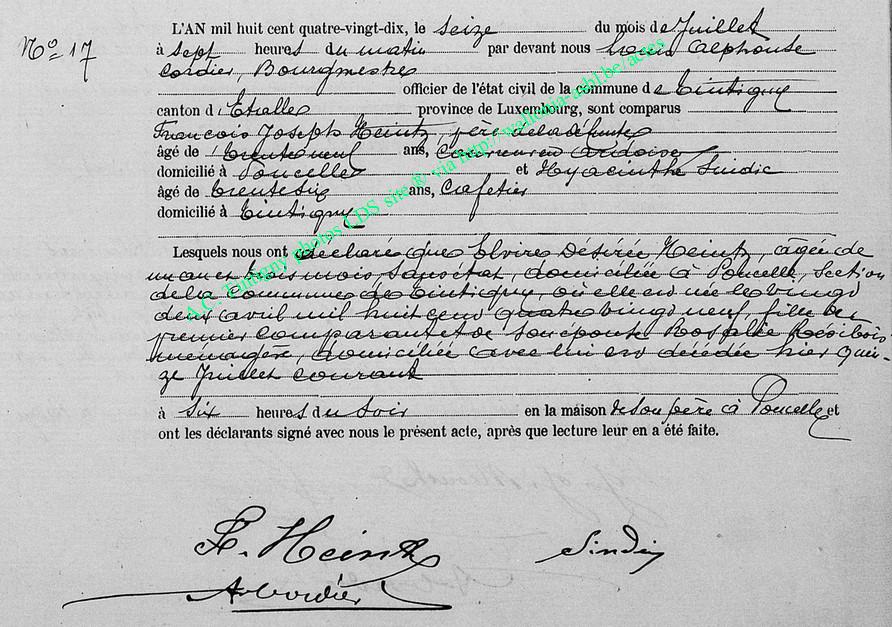 L'AN mil huit cent quatre-vingt-dix, le seize du mois de Juillet
No 17
à sept heures du matin par devant nous Louis Alphonse
Cordier, Bourgmestre
officier de l'état civil de la commune de Tintigny
canton d'Etalle province de Luxembourg, sont comparus
François Joseph Heintz, père de la défunte
âgé de trente neuf ans, Couvreur en Ardoise
domicilié à Poncelle et Hyacinthe Sindic
âgé de trente six ans, Cafetier
domicilié à Tintigny
Lesquels nous ont déclaré que Elvire Désirée Heintz, âgée de
un an et trois mois, sans état, domiciliée à Poncelle, Section
de la commune de Tintigny, où elle est née le vingt
deux avril mil huit cent quatre vingt neuf, fille du
premier comparant et de son épouse Rosalie Résibois
ménagère, domiciliée avec lui est décédée hier quin-
ze Juillet courant
à six heures du soir en la maison de son père à Poncelle et
ont les déclarants signé avec nous le présent acte, après que lecture leur en a été faite.
A.C. Tintigny photos CDS site ® via http://wallonia-asbl.be/actes
Heintz Sindic
Cordier